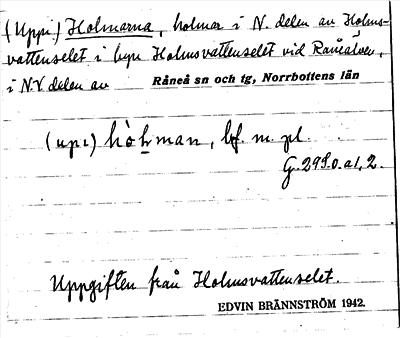 (Uppi) Holmarna, holmar i N. delen av Holms-
vattenselet i byn Holmsvattenselet vid Råneälven,
i NV. delen av Råneå sn och tg, Norrbottens län
(upi) hòḻman, bf. m. pl.
G. 295. o. a1, 2.
Uppgiften från Holmsvattenselet.
EDVIN BRÄNNSTRÖM 1942.